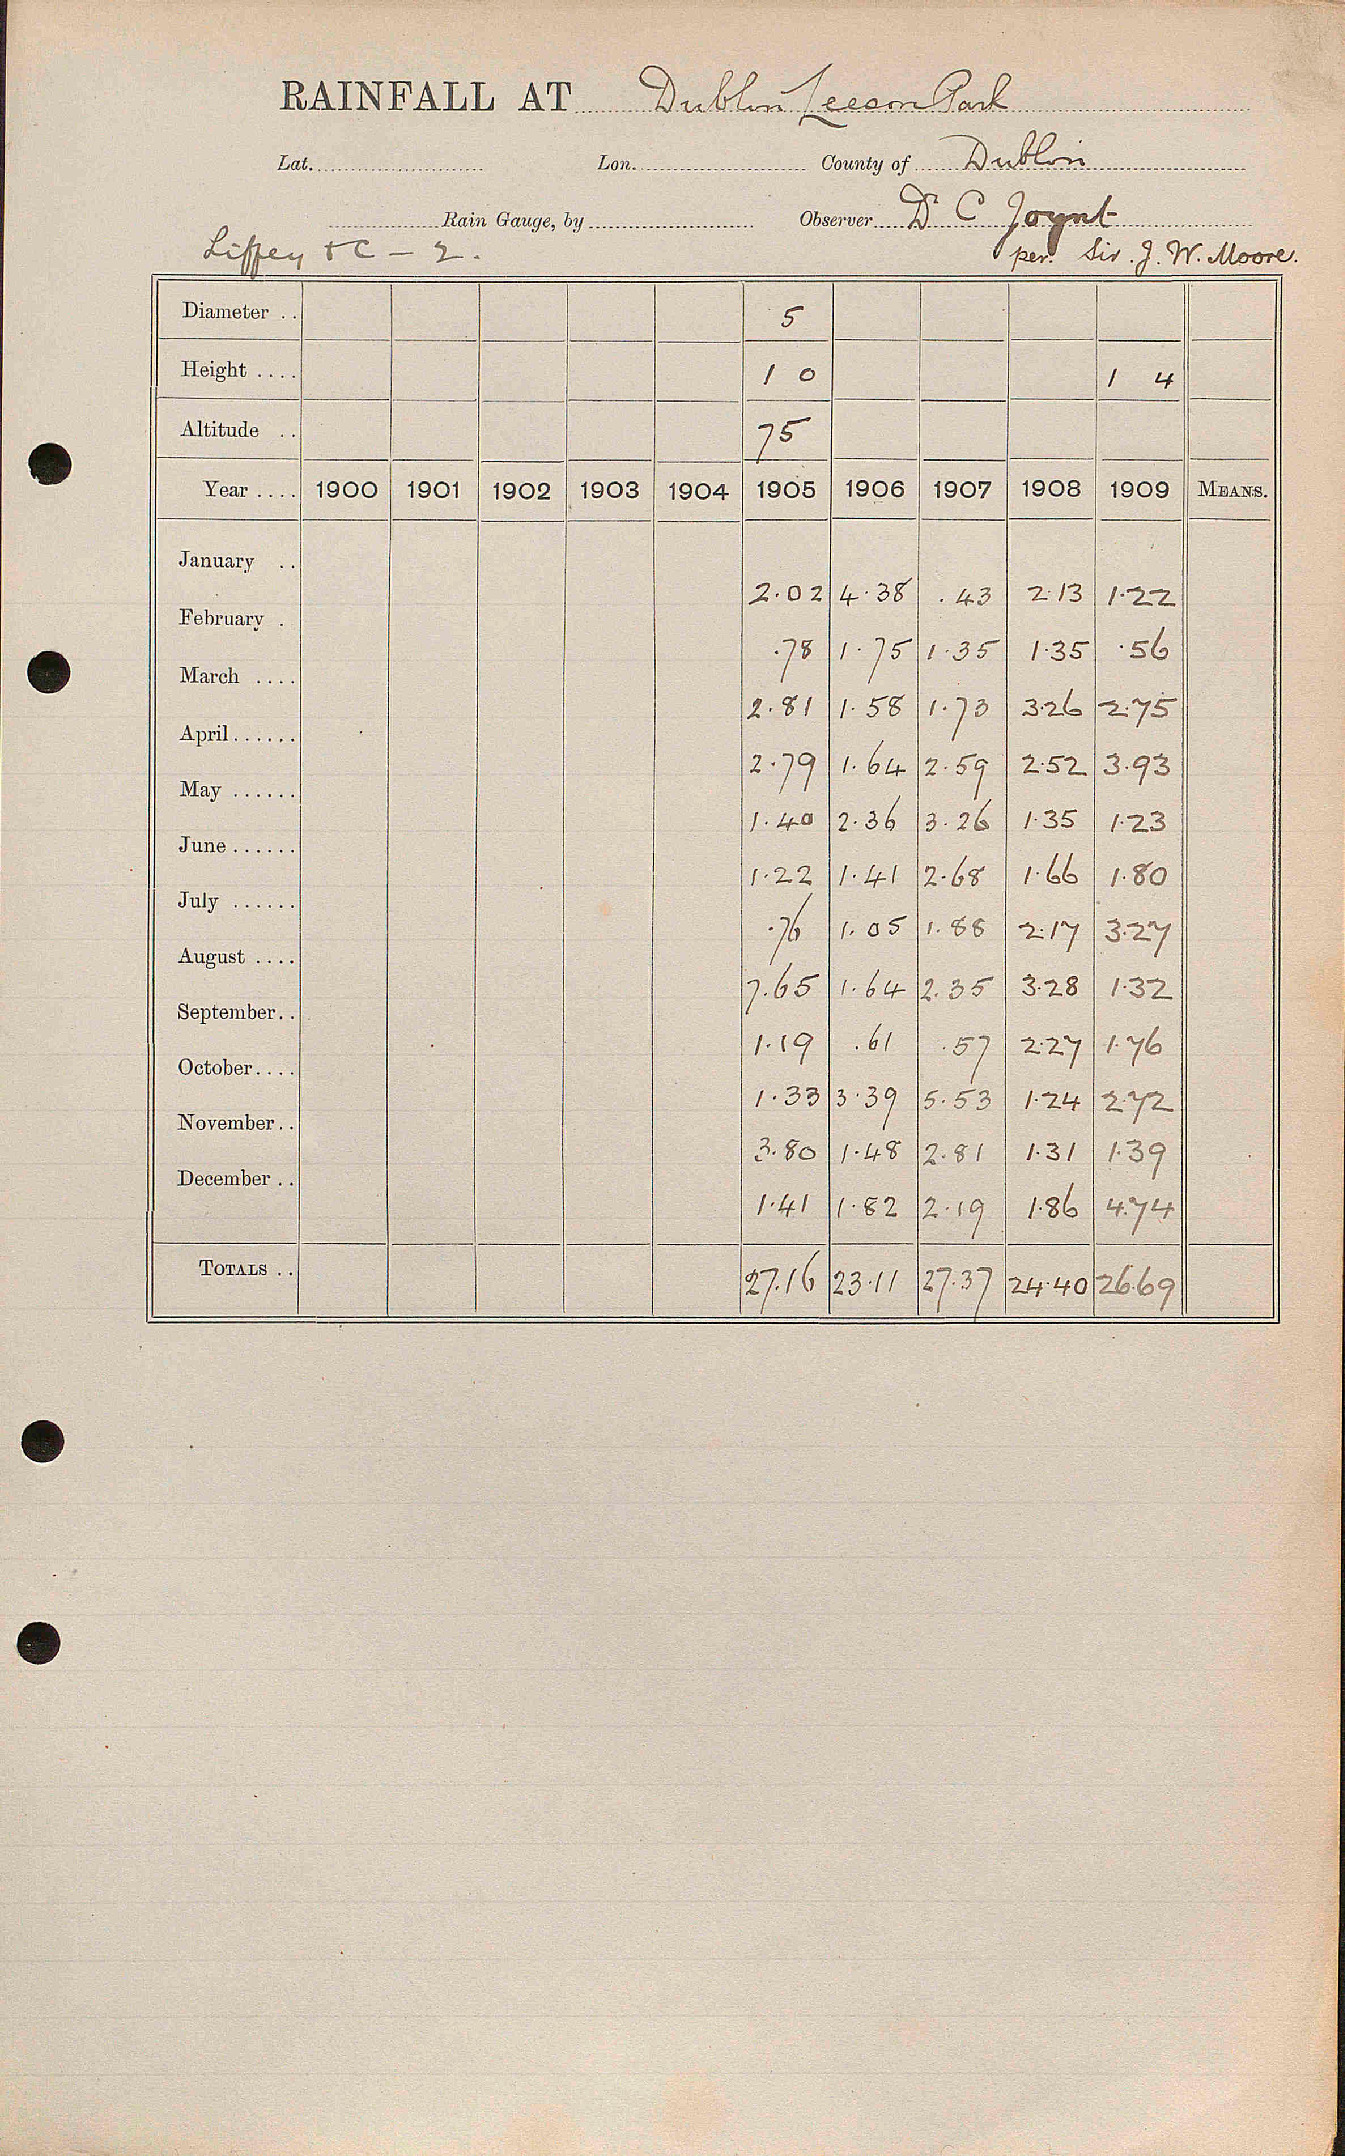 RAINFALL AT Dublin Leeson Park
Lat. Lon. County of Dublin
Rain Gauge, by Observer Dr C Joynt
Liffey & C – 2. per Sir. J. W. Moore.
Diameter .. 5
Height .... 1 0 1 4
Altitude .. 75
Year .... 1900 1901 1902 1903 1904 1905 1906 1907 1908 1909 MEANS.
January ..
2.02 4.38 .43 2.13 1.22
February .
.78 1.75 1.35 1.35 .56
March ....
2.81 1.58 1.73 3.26 2.75
April ......
2.79 1.64 2.59 2.52 3.93
May ......
1.40 2.36 3.26 1.35 1.23
June ......
1.22 1.41 2.68 1.66 1.80
July ......
.76 1.05 1.88 2.17 3.27
August ....
7.65 1.64 2.35 3.28 1.32
September..
1.19 .61 .57 2.27 1.76
October....
1.33 3.39 5.53 1.24 2.72
November..
3.80 1.48 2.81 1.31 1.39
December ..
1.41 1.82 2.19 1.86 4.74
TOTALS .. 27.16 23.11 27.37 24.40 26.69